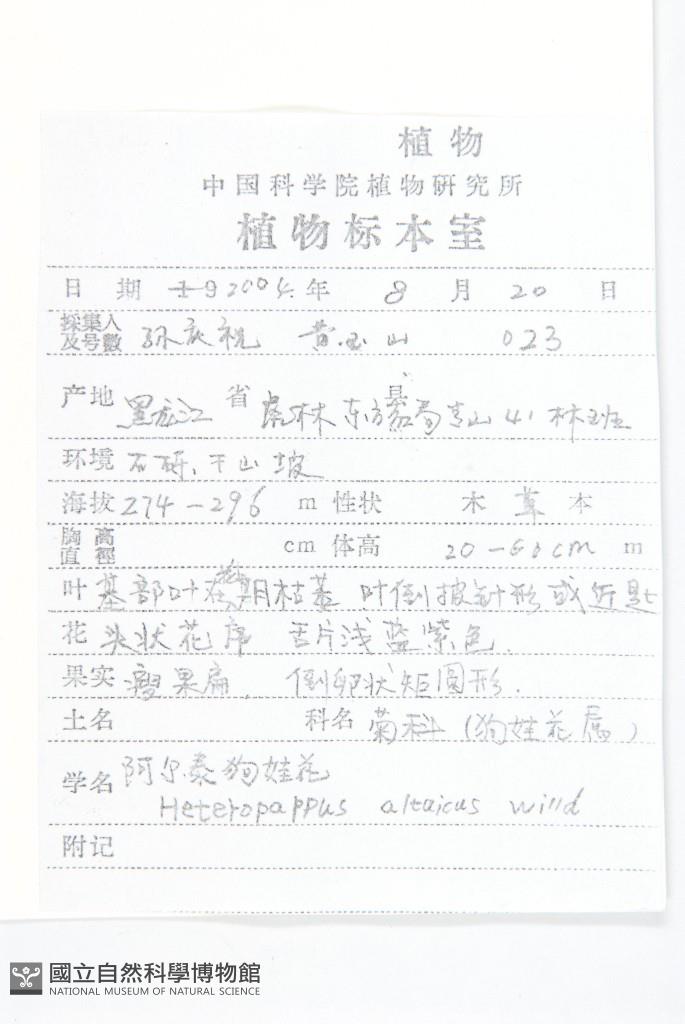 植物
中国科学院植物研究所
植物标本室
日期 192004年 8月20日
採集人及号數 孙庆祝 黄玉山 023
产地 黑龙江省虎林县东方红局青山41林班
环境 石砾、干山坡
海拔274-296 m 性状 木草本
胸高直徑 cm 体高 20-60cm m
叶 基部叶在花期枯萎 叶倒披针形或近匙
花 头状花序 舌片浅蓝紫色.
果实 瘦果扁, 倒卵状矩圆形.
土名 科名 菊科(狗娃花属)
学名 阿尔泰狗娃花
Heteropappus altaicus willd
附记
國立自然科學博物館
NATIONAL MUSEUM OF NATURAL SCIENCE